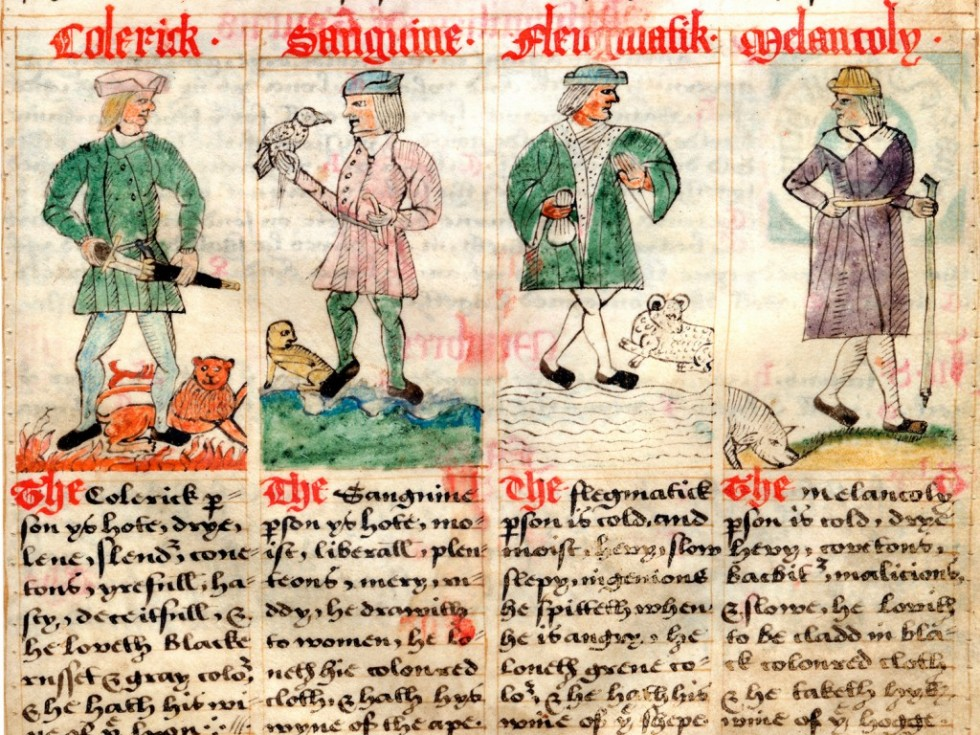 Colerick · Sanguine · Fleugmatik · Melancoly ·
The Colerick p=
son ys hote, drye,
lene, slendꝛ, cove=
tous, yrefull, ha=
sty, deceitfull, &
he loveth blacke
russet & gray coloꝛ
& he hath his wi=
ne of yͤ lyon
The Sanguine
pson ys hote, mo=
ist, liberall, plen=
teous, mery, ru=
ddy, he drawith
to women, he lo=
veth hie coloured
cloth, & hath hys
wyne of the ape
The flegmatick
pson is cold, and
moist, hevy, slow
slepy, ingenious
he spitteth when
he is angry, he
loveth grene co=
loꝛ, & he hath his
wine of yͤ shepe
The melancoly
pson is cold, drye
hevy, covetous,
backbitꝛ, malicious,
& slowe, he lovith
to be cladd in bla=
ck coloured cloth
& he taketh hys
wine of yͤ hogge